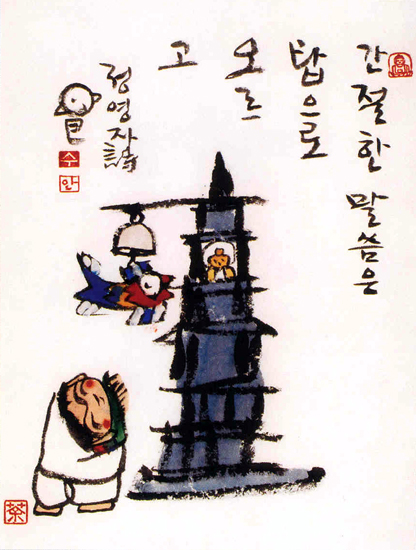 간절한 말씀은
탑으로
오르
고
정영자 詩
수
안